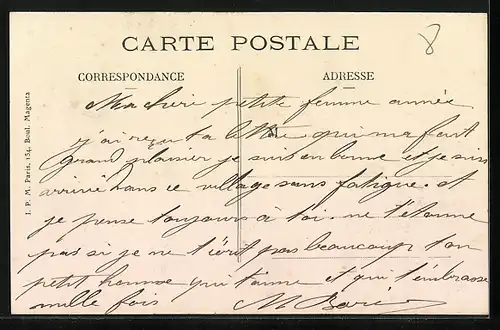 8
CARTE POSTALE
CORRESPONDANCE ADRESSE
I. P. M. Paris, 154, Boul. Magenta
Ma chère petite femme aimée
j'ai reçu ta lettre qui ma fait
grand plaisir je suis en bonne et je suis
arrivé dans ce village sans fatigue. et
je pense toujours à toi. ne t'étonne
pas si je ne t'écrit pas beaucoup ton
petit homme qui t'aime et qui t'embrasse
mille fois M